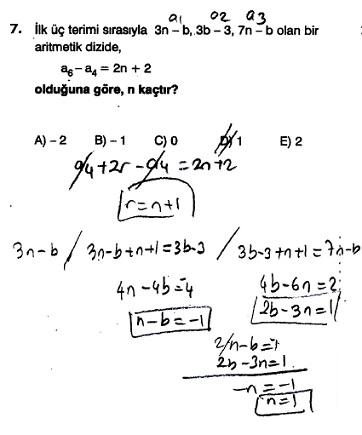 a1 a2 a3
7. İlk üç terimi sırasıyla 3n – b, 3b – 3, 7n – b olan bir
aritmetik dizide,
a₆ – a₄ = 2n + 2
olduğuna göre, n kaçtır?
A) – 2 B) – 1 C) 0 D) 1 E) 2
a4 + 2r – a4 = 2n + 2
r = n + 1
3n – b / 3n – b + n + 1 = 3b – 3 / 3b – 3 + n + 1 = 7n – b
4n – 4b = –4
n – b = –1
4b – 6n = 2
2b – 3n = 1
2/ n – b = –1
2b – 3n = 1
–n = –1
n = 1